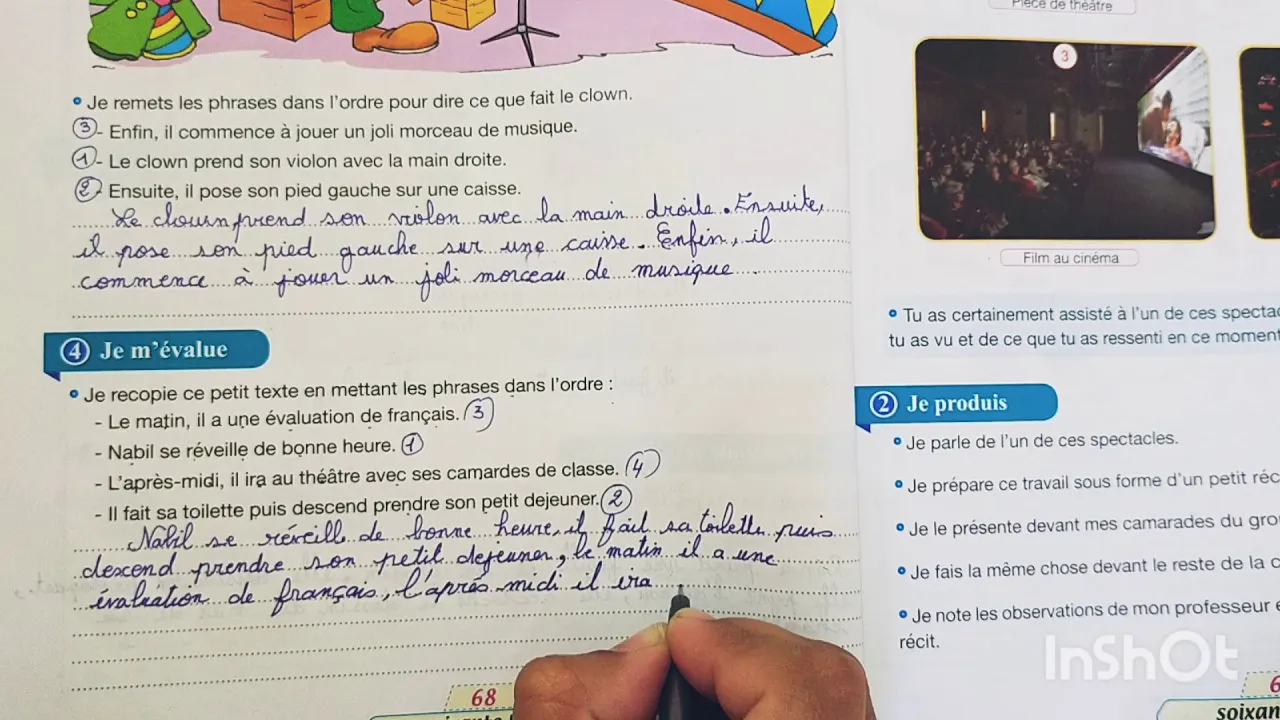 Pièce de théâtre
3
Film au cinéma
• Je remets les phrases dans l'ordre pour dire ce que fait le clown.
3 - Enfin, il commence à jouer un joli morceau de musique.
1 - Le clown prend son violon avec la main droite.
2 - Ensuite, il pose son pied gauche sur une caisse.
Le clown prend son violon avec la main droite. Ensuite,
il pose son pied gauche sur une caisse. Enfin, il
commence à jouer un joli morceau de musique
4 Je m'évalue
• Je recopie ce petit texte en mettant les phrases dans l'ordre :
- Le matin, il a une évaluation de français. 3
- Nabil se réveille de bonne heure. 1
- L'après-midi, il ira au théâtre avec ses camardes de classe. 4
- Il fait sa toilette puis descend prendre son petit dejeuner. 2
Nabil se réveille de bonne heure, il fait sa toilette puis
descend prendre son petit dejeuner, le matin il a une
évaluation de français, l'après-midi il ira
68
• Tu as certainement assisté à l'un de ces
tu as vu et de ce que tu as ressenti en ce
2 Je produis
• Je parle de l'un de ces spectacles.
• Je prépare ce travail sous forme d'un petit
• Je le présente devant mes camarades du
• Je fais la même chose devant le reste de la
• Je note les observations de mon professeur
récit.
InShOt